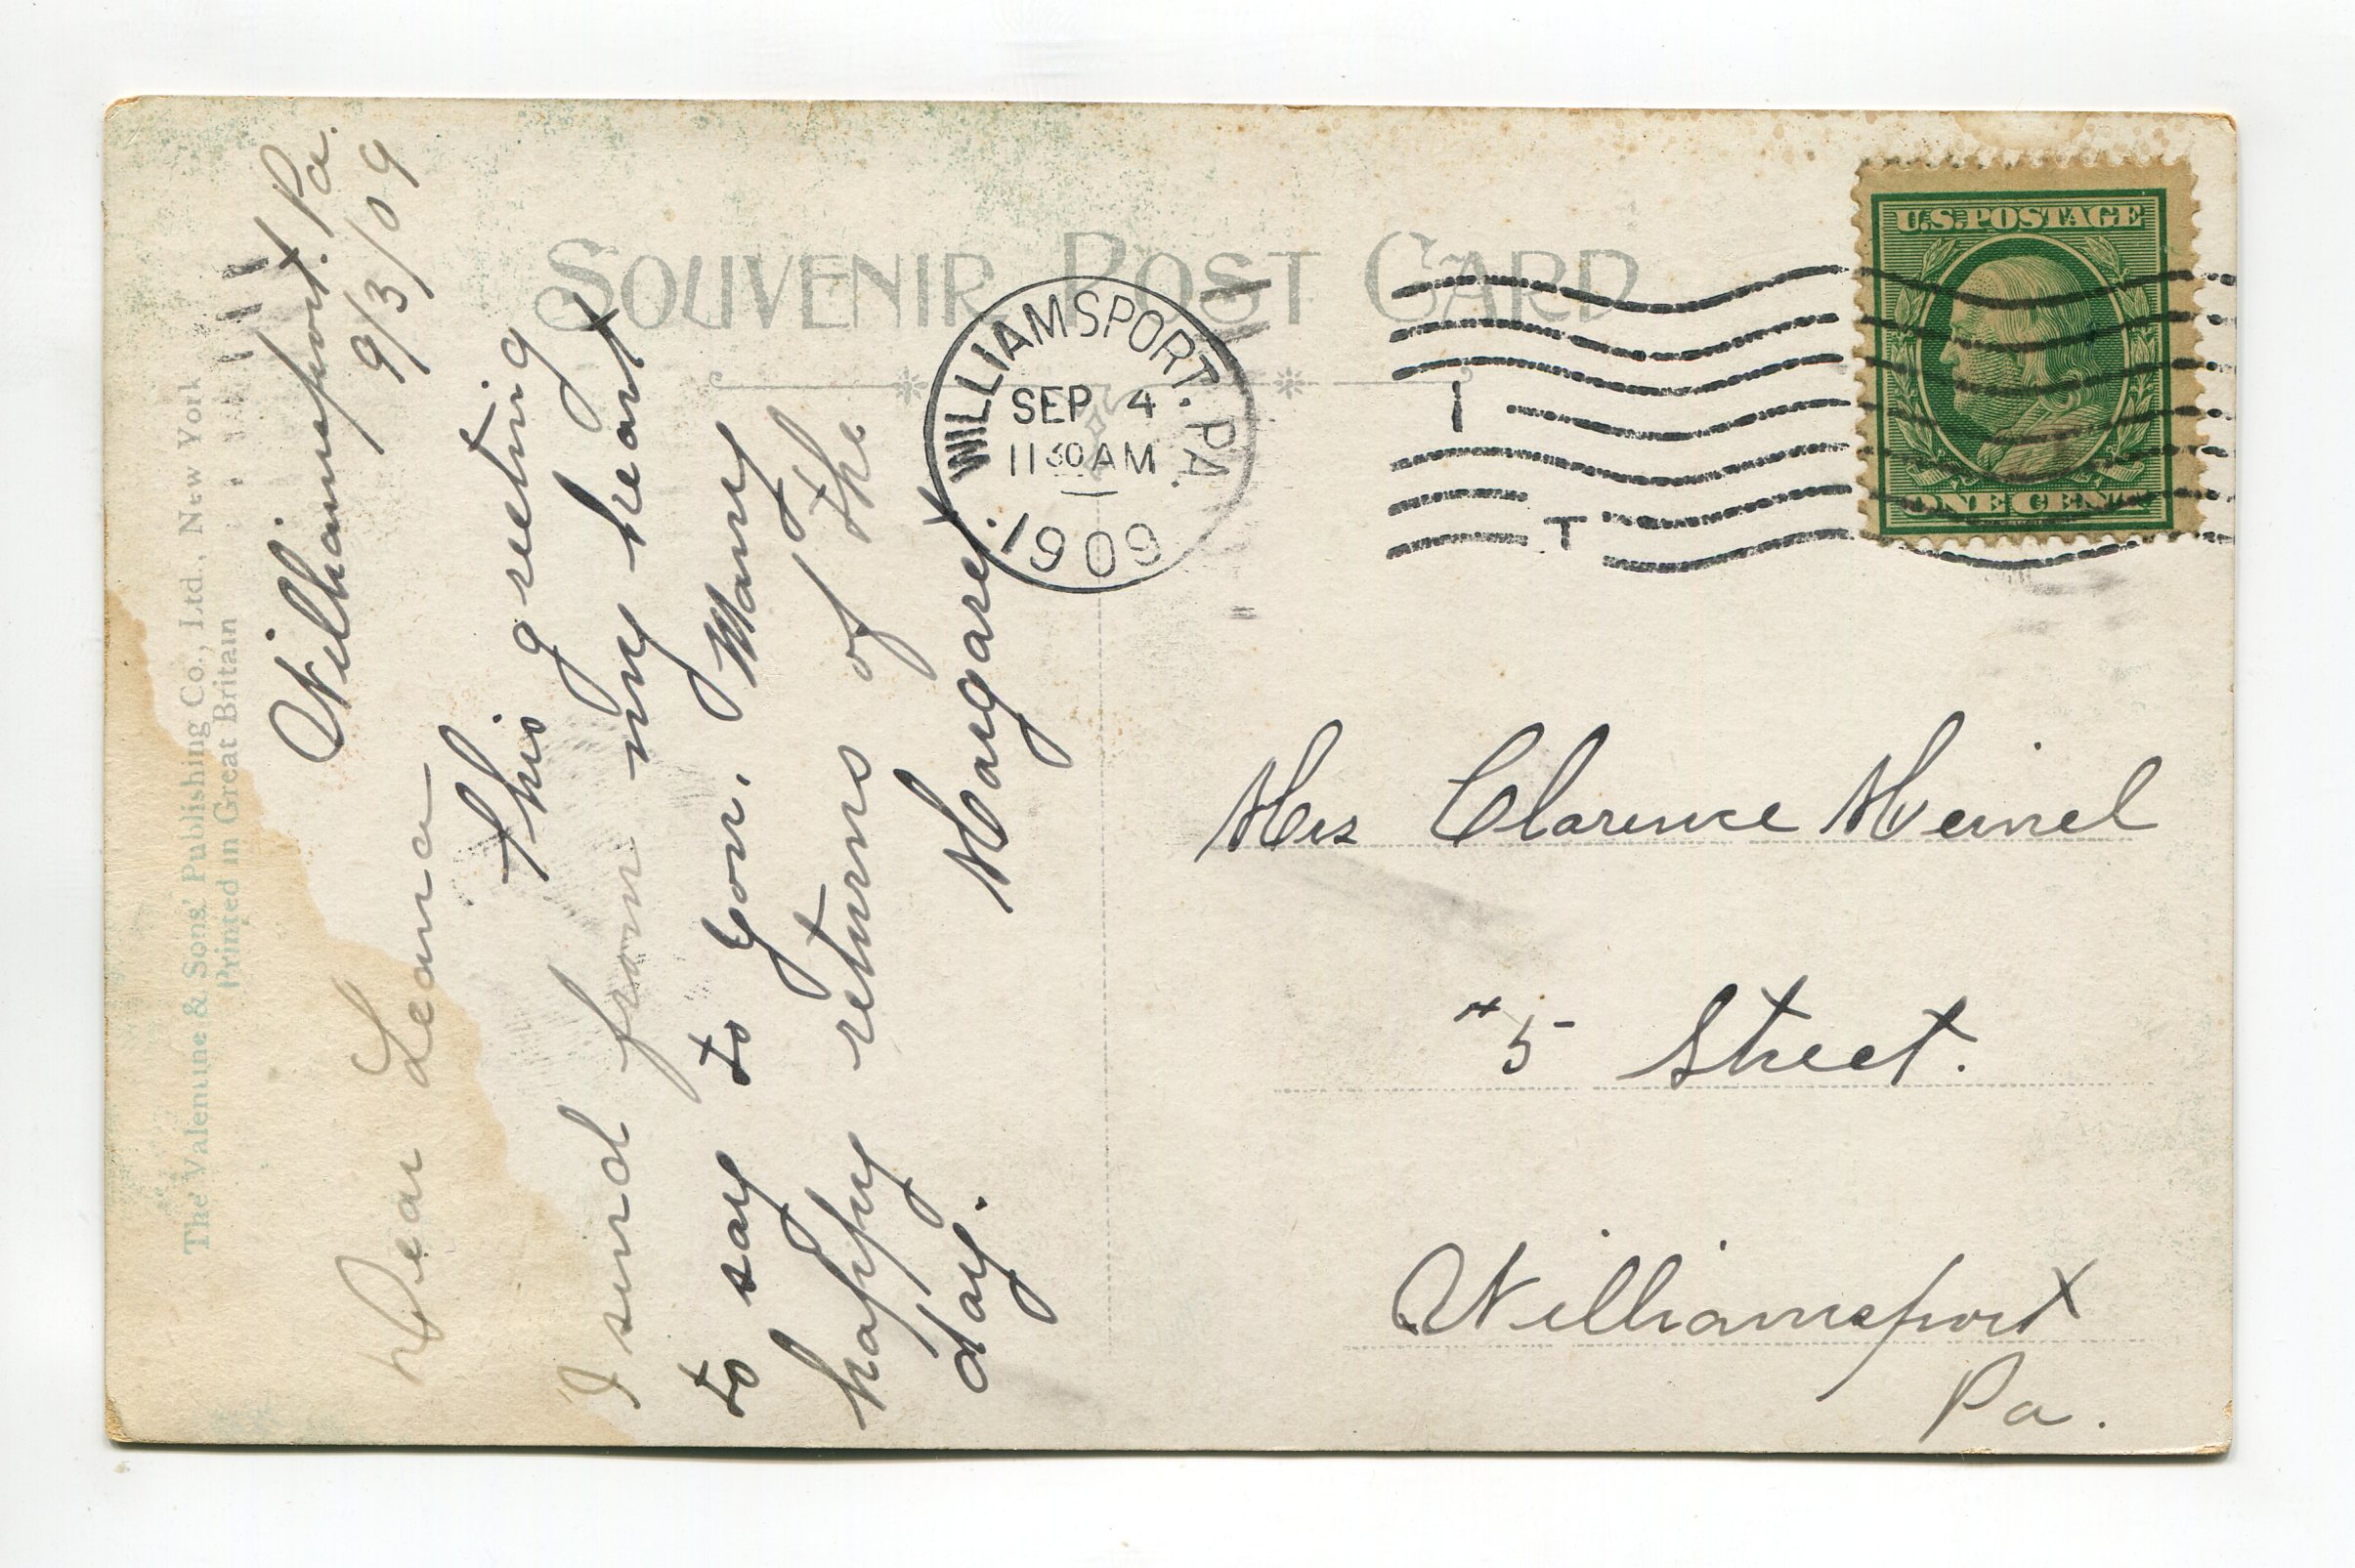 The Valentine & Sons' Publishing Co., Ltd., New York
Printed in Great Britain
Williamsport. Pa.
9/3/09
Dear Leana
This greeting
I send from my heart
to say to you. Many
happy returns of the
day.
Margaret
SOUVENIR POST CARD
WILLIAMSPORT. PA.
SEP 4
11 30 AM
1909
U.S. POSTAGE
ONE CENT
Mrs Clarence Meinel
#5 Street.
Williamsport
Pa.